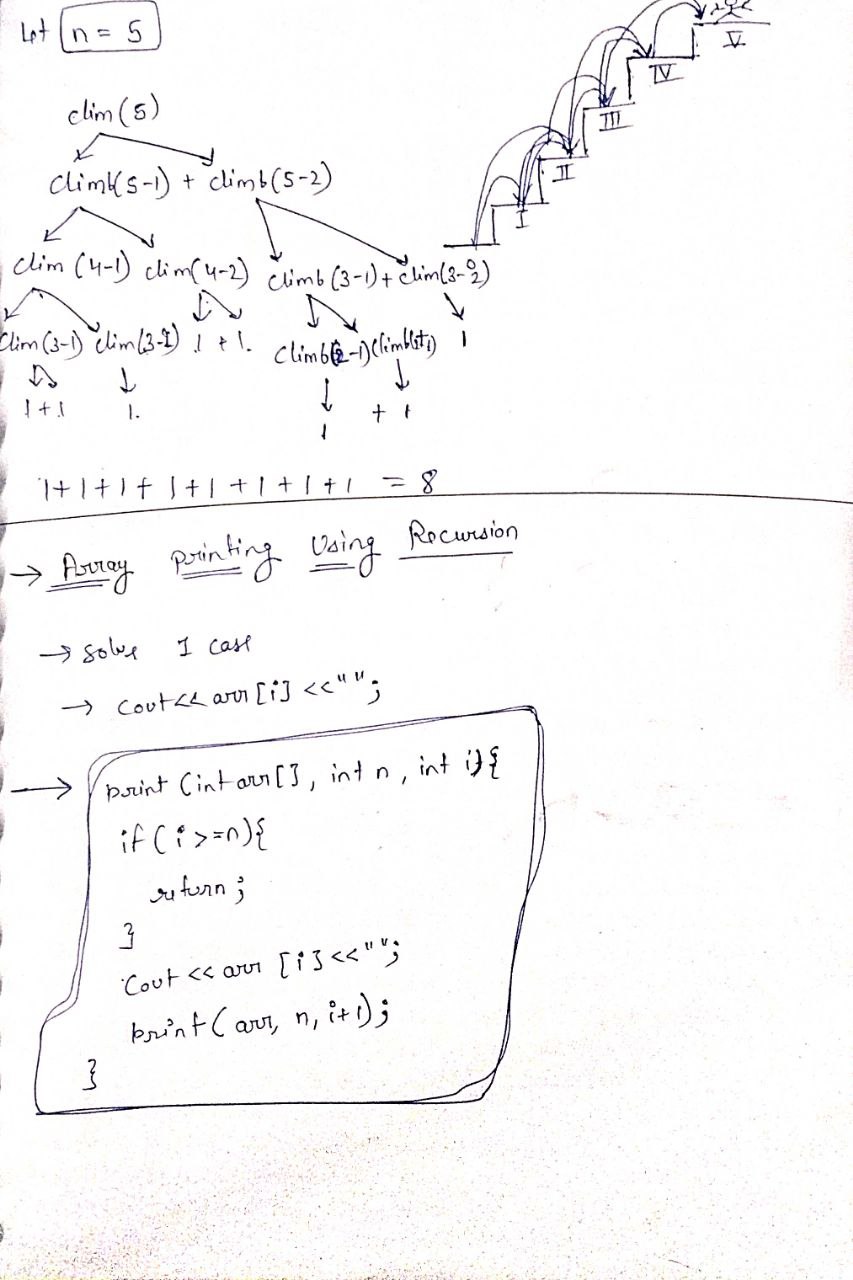 Let n = 5
clim(5)
Climb(5-1) + climb(5-2)
clim (4-1) clim(4-2) climb (3-1) + clim(3-2)
clim (3-1) clim(3-2) 1 + 1. climb(2-1) 1
1+1 1. 1 + 1
1+1+1+1+1+1+1+1 = 8
I
II
III
IV
V
→ Array printing Using Recursion
→ solve 1 case
→ cout<< arr[i] <<" ";
→ print (int arr[], int n, int i){
if( i >=n){
return ;
}
Cout << arr [i] <<" ";
print( arr, n, i+1);
}